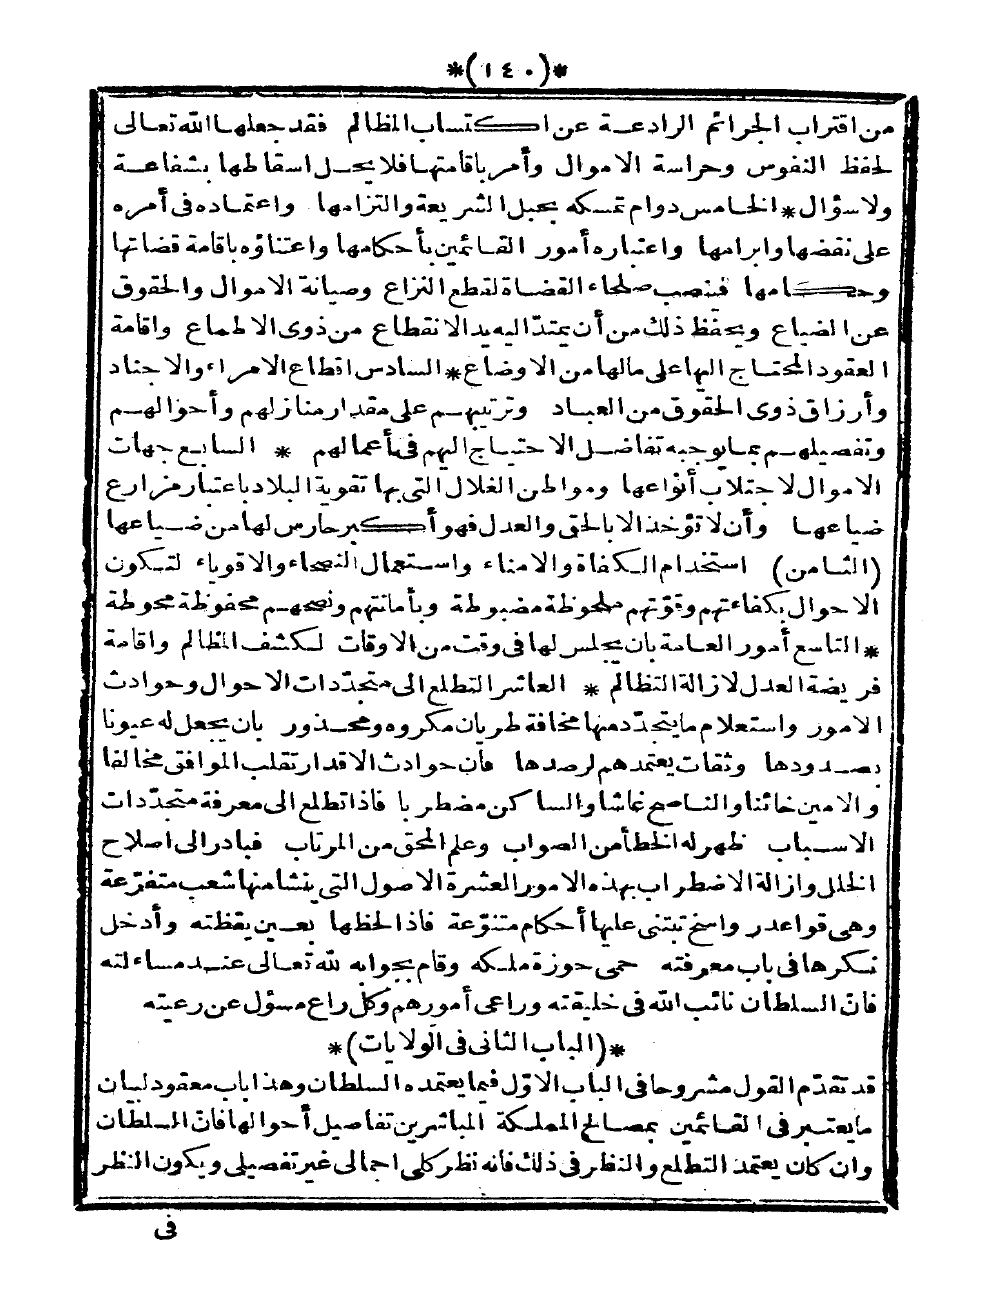 *(١٤٠)*
من اقتراب الجرائم الرادعة عن اكتساب المظالم فقد جعلها الله تعالى
لحفظ النفوس وحراسة الاموال وأمر باقامتها فلا يحل اسقاطها بشفاعة
ولا سؤال * الخامس دوام تمسكه بحبل الشريعة والتزامها واعتماده فى أمره
على نقضها وابرامها واعتباره أمور القائمين بأحكامها واعتناؤه باقامة قضاتها
وحكامها فينصب صلحاء القضاة لقطع النزاع وصيانة الاموال والحقوق
عن الضياع ويحفظ ذلك من أن يمتد اليه يد الانقطاع من ذوى الاطماع واقامة
العقود المحتاج اليها على مالها من الاوضاع * السادس اقطاع الامراء والاجناد
وأرزاق ذوى الحقوق من العباد وترتيبهم على مقدار منازلهم وأحوالهم
وتفصيلهم بما يوجبه تفاضل الاحتياج اليهم فى أعمالهم * السابع جهات
الاموال لاجتلاب أنواعها ومواطن الغلال التى بها تقوية البلاد باعتبار مزارع
ضياعها وأن لا تؤخذ الا بالحق والعدل فهو أكبر حارس لها من ضياعها
(الثامن) استخدام الكفاة والامناء واستعمال النصحاء والاقوياء لتكون
الاحوال بكفاءتهم وقوتهم ملحوظة مضبوطة وبأمانتهم ونصحهم محفوظة محوطة
* التاسع أمور العامة بان يجلس لها فى وقت من الاوقات لكشف المظالم واقامة
فريضة العدل لازالة التظالم * العاشر التطلع الى متجددات الاحوال وحوادث
الامور واستعلام ما يتجدد منها مخافة طريان مكروه ومحذور بان يجعل له عيونا
بصدودها وثقات يعتمدهم لرصدها فان حوادث الاقدار تقلب الموافق مخالفا
والامين خائنا والناصح غاشا والساكن مضطربا فاذا تطلع الى معرفة متجددات
الاسباب ظهر له الخطأ من الصواب وعلم المحق من المرتاب فبادر الى اصلاح
الخلل وازالة الاضطراب بهذه الامور العشرة الاصول التى ينشا منها شعب متفرعة
وهى قواعد رواسخ تبتنى عليها أحكام متنوعة فاذا لحظها بعين يقظته وأدخل
نكرها فى باب معرفته حمى حوزة ملكه وقام بجوابه لله تعالى عند مساءلته
فان السلطان نائب الله فى خليقته وراعى أمورهم وكل راع مسؤل عن رعيته
*(الباب الثانى فى الولايات)*
قد تقدم القول مشروحا فى الباب الاول فيما يعتمده السلطان وهذا باب معقود لبيان
ما يعتبر فى القائمين بمصالح المملكة المباشرين تفاصيل أحوالها فان السلطان
وان كان يعتمد التطلع والنظر فى ذلك فانه نظر كلى اجمالى غير تفصيلى ويكون النظر
فى